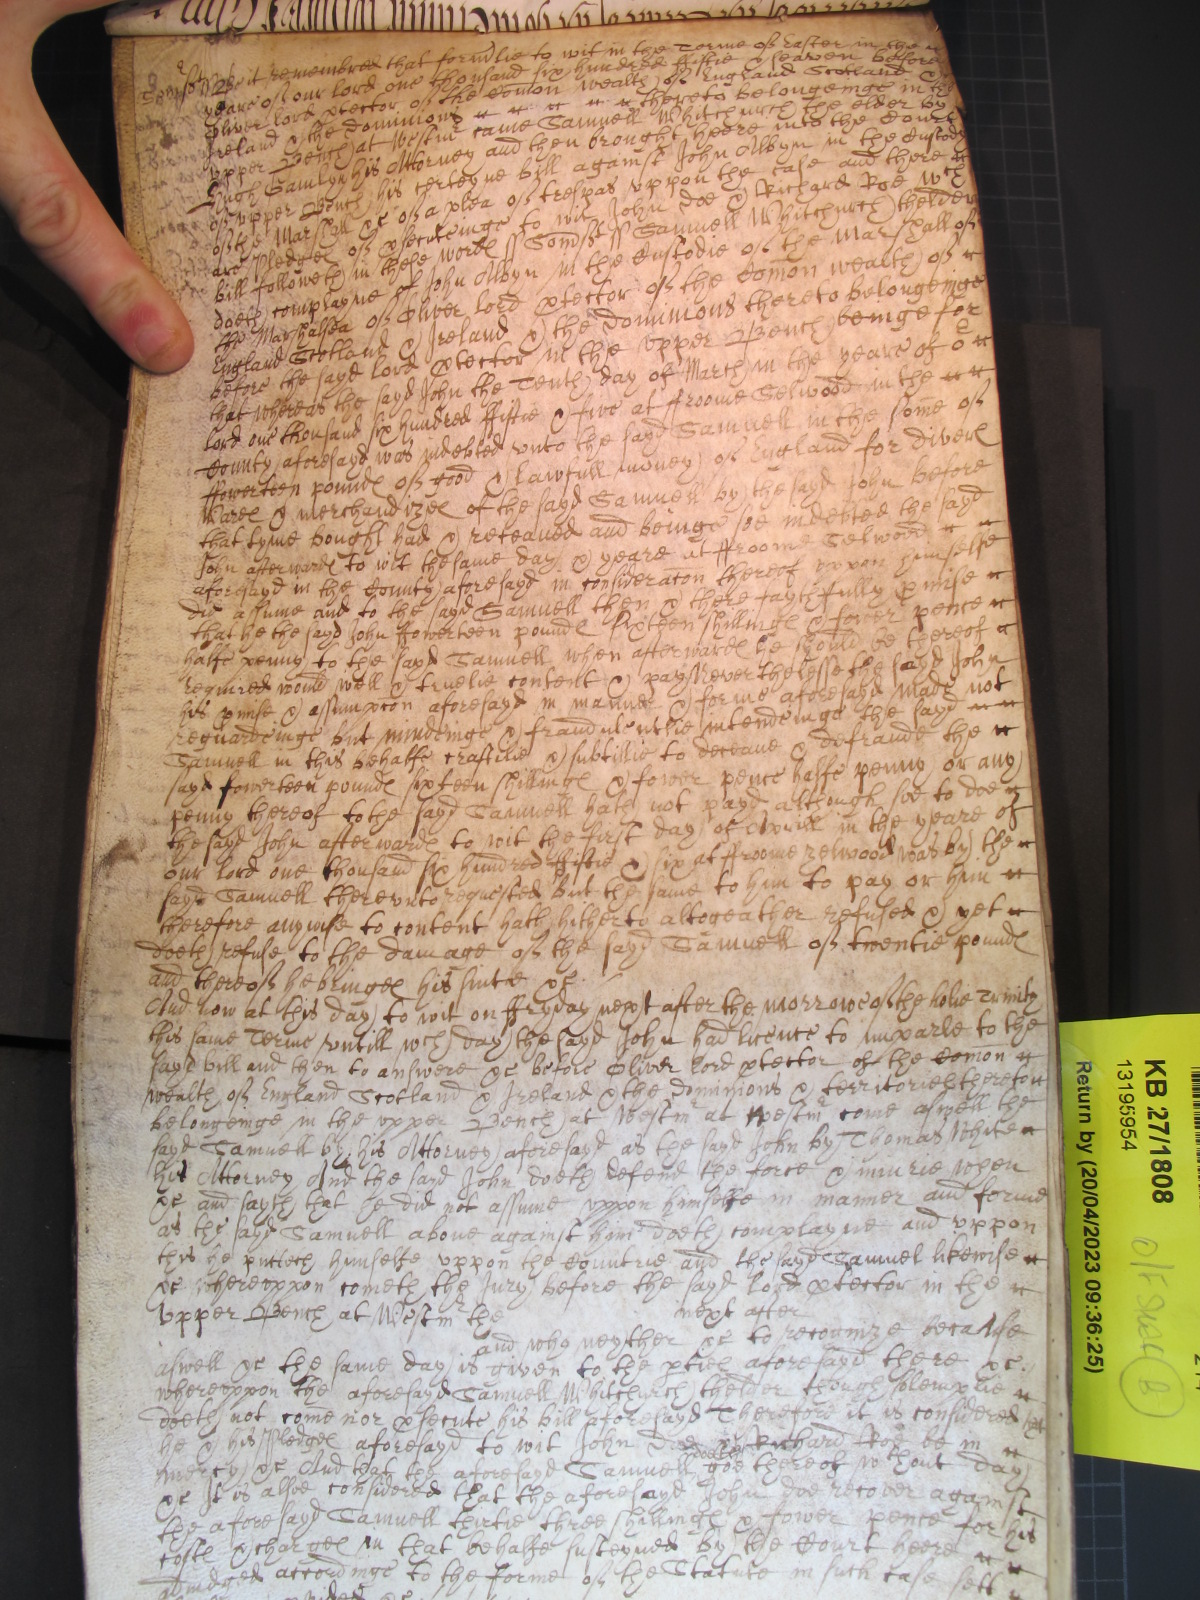 Somss Be it remembred that formerlie to wit in the Terme of Easter in the
yeare of our lord one thousand six hundred fiftie & seaven before
Oliver lord ptector of the Comon wealth of England Scotland &
Ireland & the dominions thereto belongeinge in the
upper Bench at Westmr came Samuell Whitchurch the elder by
Hugh Hamlyn his Attorney and then brought heere into the Court
of upper Bench his certeyne bill against John Albyn in the Custody
of the Marshall &c of a plea of trespas uppon the case and there
are pledges of psecuteinge to wit John Doe & Richard Roe wch
bill followeth in these wordes ss Somss ss Samuell Whitchurch thelder
doeth complayne of John Albyn in the Custodie of the Marshall of
the Marshalsea of Oliver lord ptector of the Comon wealth of
England Scotland & Ireland & the dominions thereto belongeinge
before the sayd lord ptector in the upper Bench beinge for
that whereas the sayd John the Tenth day of March in the yeare of or
lord one thousand six hundred fiftie & five at ffroome Selwood in the
County aforesayd was indebted unto the sayd Samuell in the some of
ffowerteen poundes of good & lawfull money of England for divers
wares & merchandizes of the sayd Samuell by the sayd John before
that tyme bought had & receaved and beinge soe indebted the sayd
John afterwardes to wit the same day & yeare at ffroome Selwood
aforesayd in the County aforesayd in consideracon thereof uppon himselfe
did assume and to the sayd Samuell then & there faythfully pmise
that he the sayd John ffowerteen poundes sixteen shillinges & fower pence
halfe penny to the sayd Samuell when afterwardes he should be thereof
required would well & truelie content & pay Neverthelesse the sayd John
his pmise & assumpcon aforesayd in manner & forme aforesayd made not
reguardeinge but mindeinge & fraudulentlie intendeinge the sayd
Samuell in this behalfe craftilie & subtillie to deceave & defraude the
sayd fowerteen poundes sixteen shillinges & fower pence halfe penny or any
penny thereof to the sayd Samuell hath not payd although soe to doe
the sayd John afterwardes to wit the first day of Aprill in the yeare of
our lord one thousand six hundred fiftie & six at ffroome selwood was by the
sayd Samuell thereunto requested But the same to him to pay or him
therefore anywise to content hath hitherto altogeather refused & yet
doeth refuse to the damage of the sayd Samuell of twentie poundes
and thereof he bringes his suite &c
And now at this day to wit on ffryday next after the morrowe of the holie Trinity
this same Terme untill wch day the sayd John had licence to imparle to the
sayd bill and then to answere &c before Oliver lord ptector of the Comon
wealth of England Scotland & Ireland & the Dominions & territories thereto
belongeinge in the upper Bench at Westmr at Westmr come aswell the
sayd Samuell by his Attorney aforesayd as the sayd John by Thomas White
his Attorney And the sayd John doeth defend the force & iniurie when
&c and sayth that he did not assume uppon himselfe in manner and forme
as the sayd Samuell above against him doeth complayne and uppon
this he putteth himselfe uppon the Countrie and the sayd Samuel likewise
&c whereuppon cometh the Jury before the sayd lord ptector in the
upper Bench at Westm the next after
and who neyther &c to recognize because
aswell &c the same day is given to the pties aforesayd there &c.
whereuppon the aforesayd Samuell Whitchurch thelder though solemplie
doeth not come nor psecute his bill aforesayd Therefore it is considered that
he & his pledges aforesayd to wit John Doe & Richard Roe be in
mercy &c And that the aforesayd Samuell goe thereof without day
&c It is alsoe considered that the aforesayd John doe recover against
the aforesayd Samuell thirtie three shillinges & fower pence for his
costes & charges in that behalfe susteyned by the Court heere
adiudged accordinge to the forme of the Statute in such case sett
KB 27/1808
13195954
Return by (20/04/2023 09:36:25)